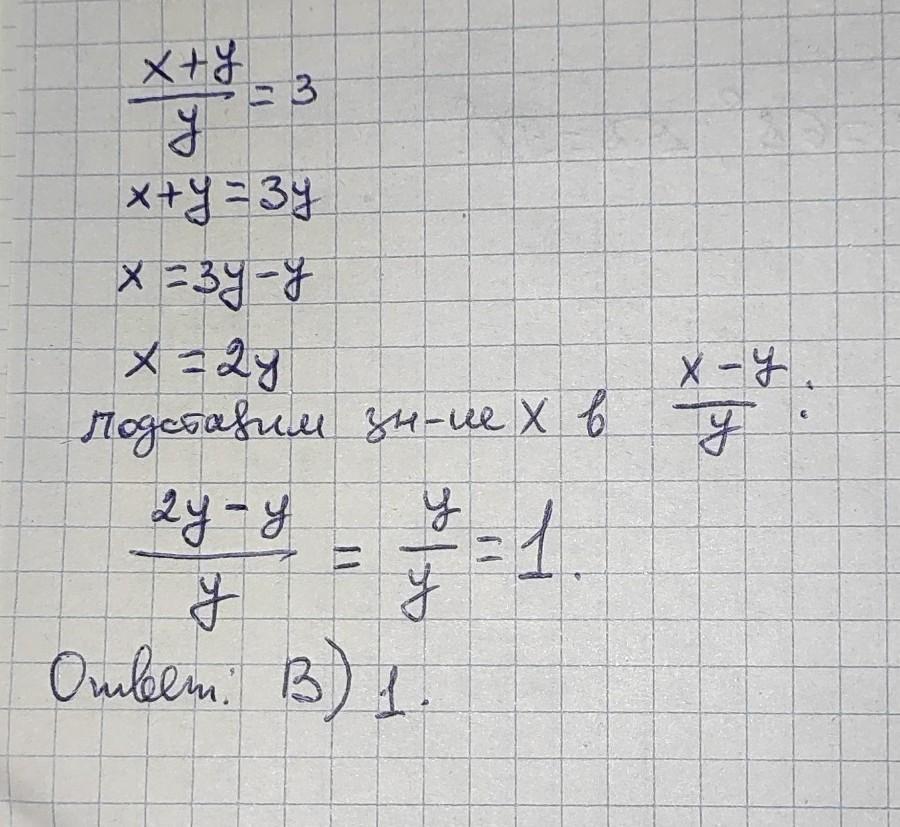 x+y/y = 3
x+y = 3y
x = 3y-y
x = 2y
подставим зн-ие X в x-y/y :
2y-y/y = y/y = 1.
Ответ: B) 1.